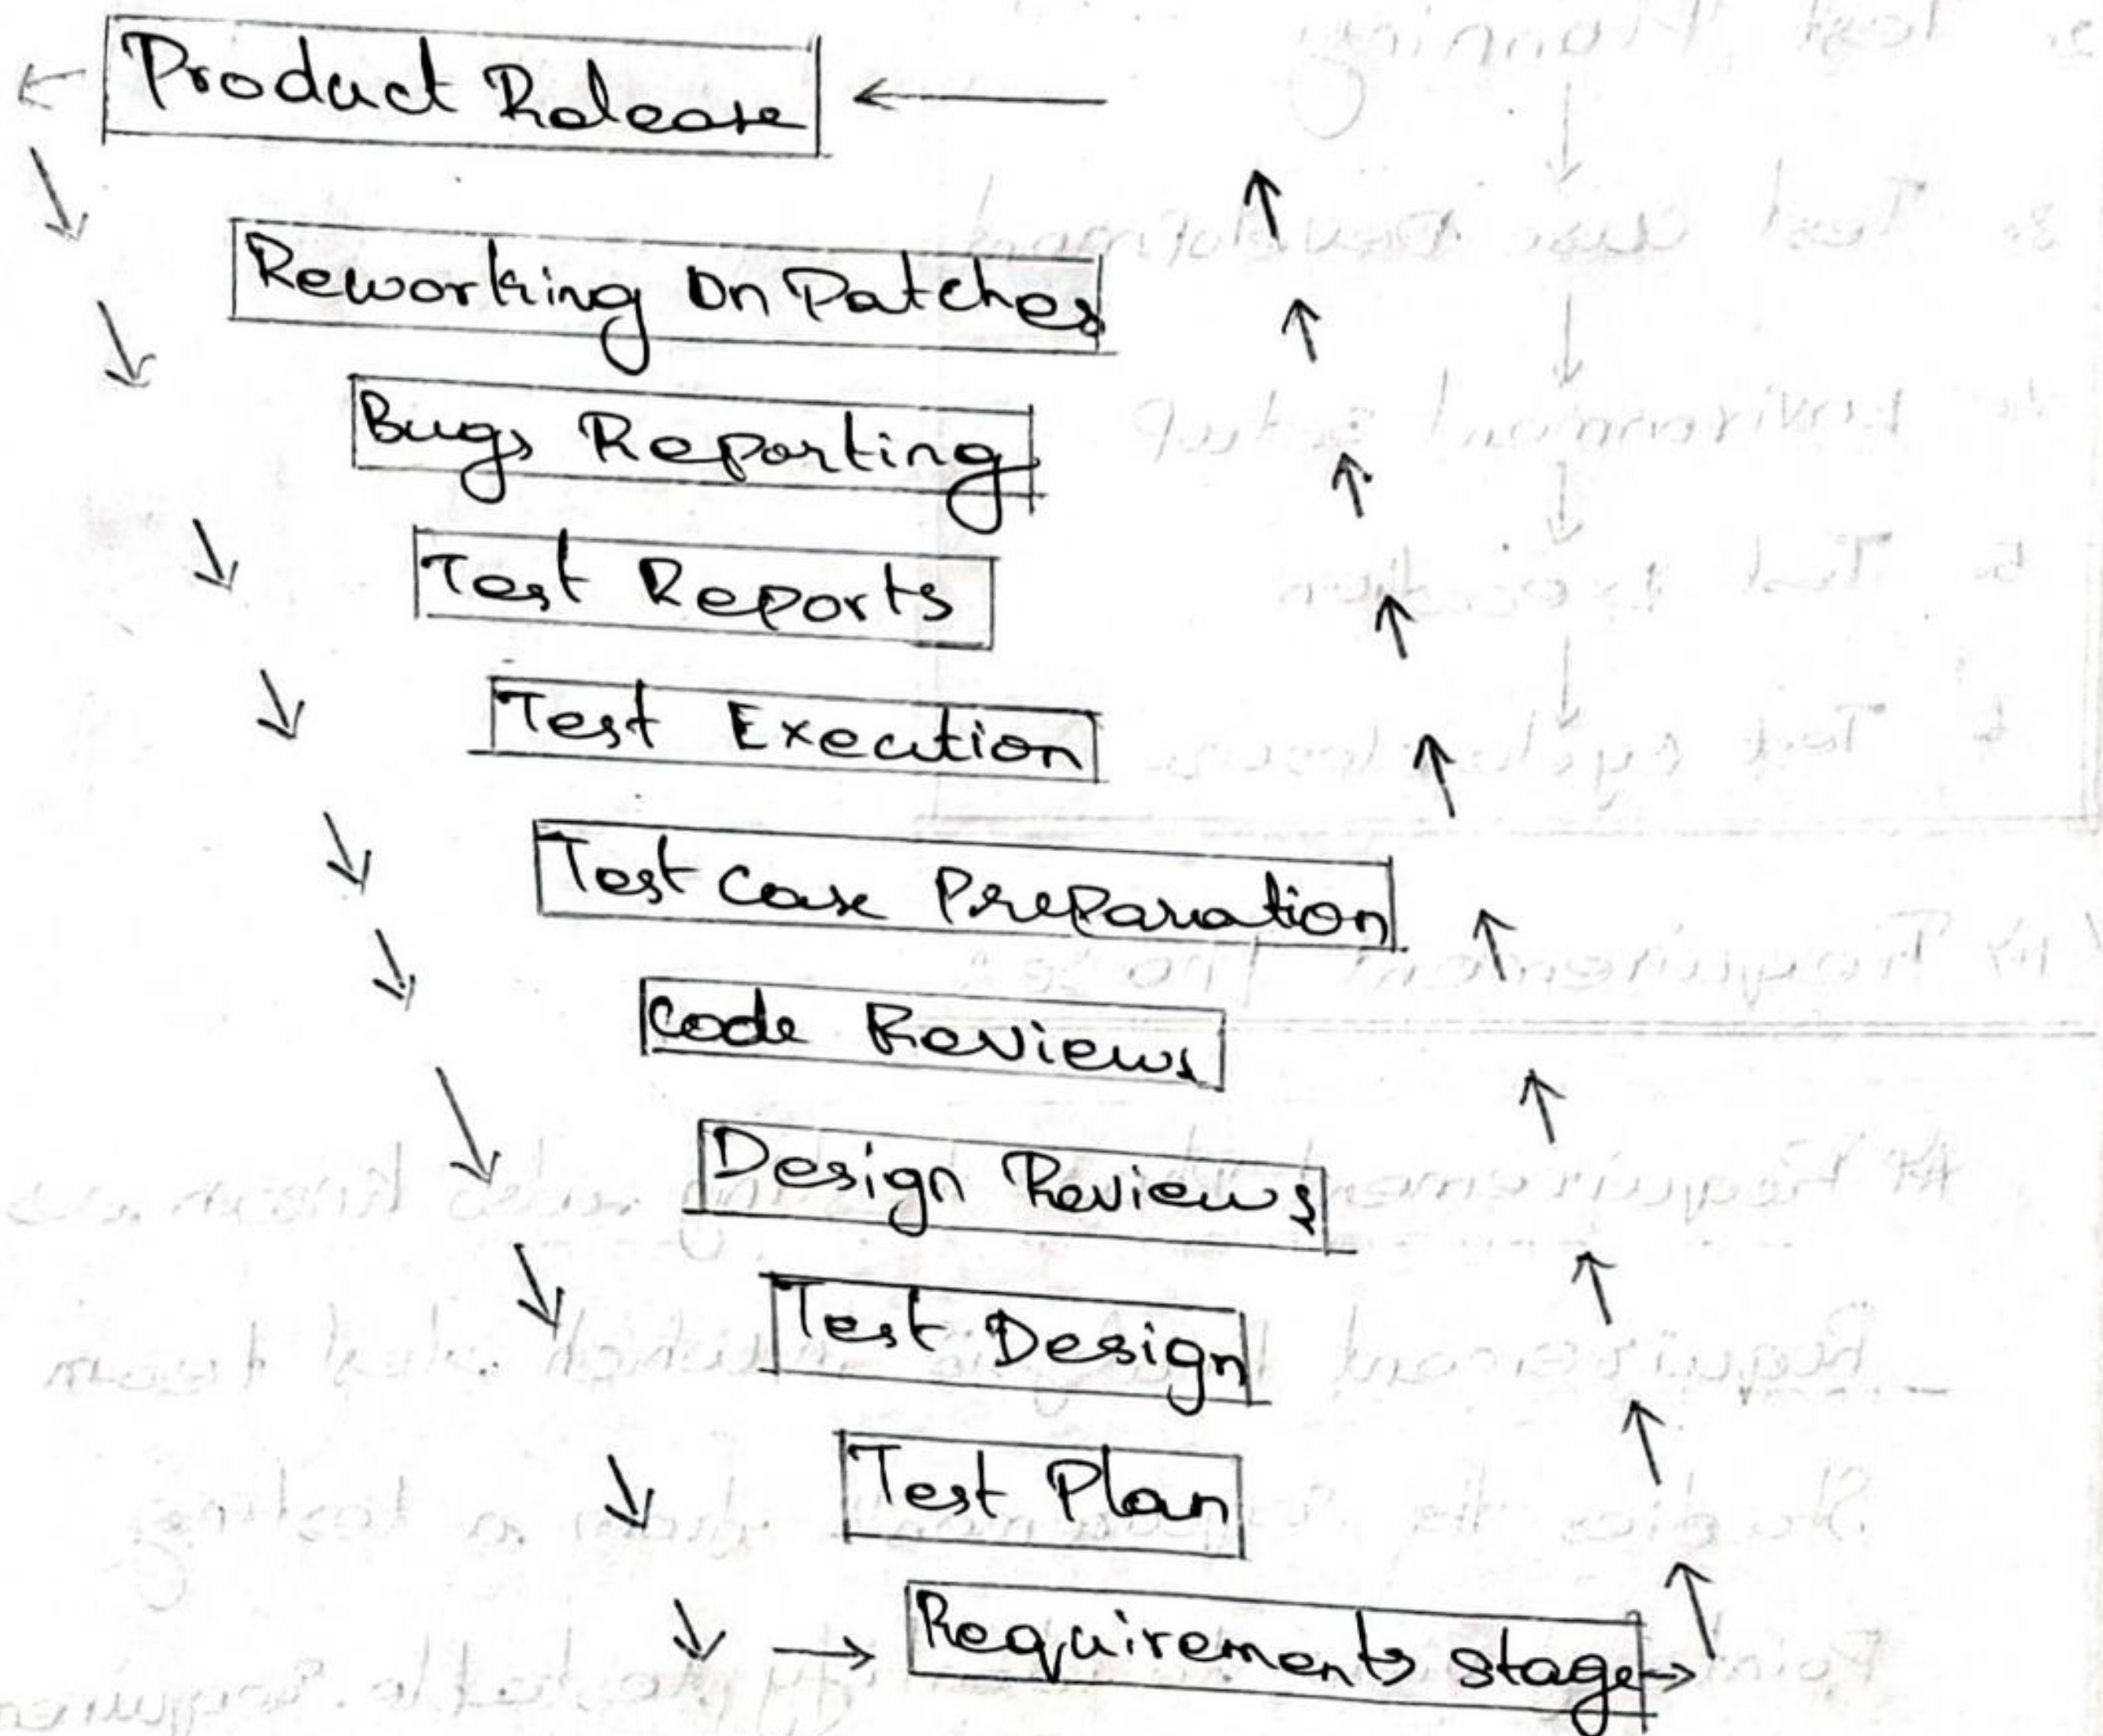 Product Release
Reworking on Patches
Bugs Reporting
Test Reports
Test Execution
Test Case Preparation
Code Reviews
Design Reviews
Test Design
Test Plan
Requirements stage